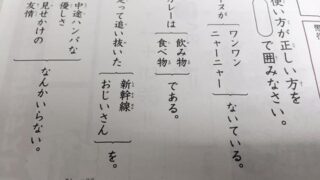 使い方が正しい方を
で囲みなさい。
スが
ワンワン
ニャーニャー
ないている。
カレーは
飲み物
食べ物
である。
って追い抜いた
新幹線
おじいさん
を。
中途ハンパな
優しさ
見せかけの
友情
なんかいらない。